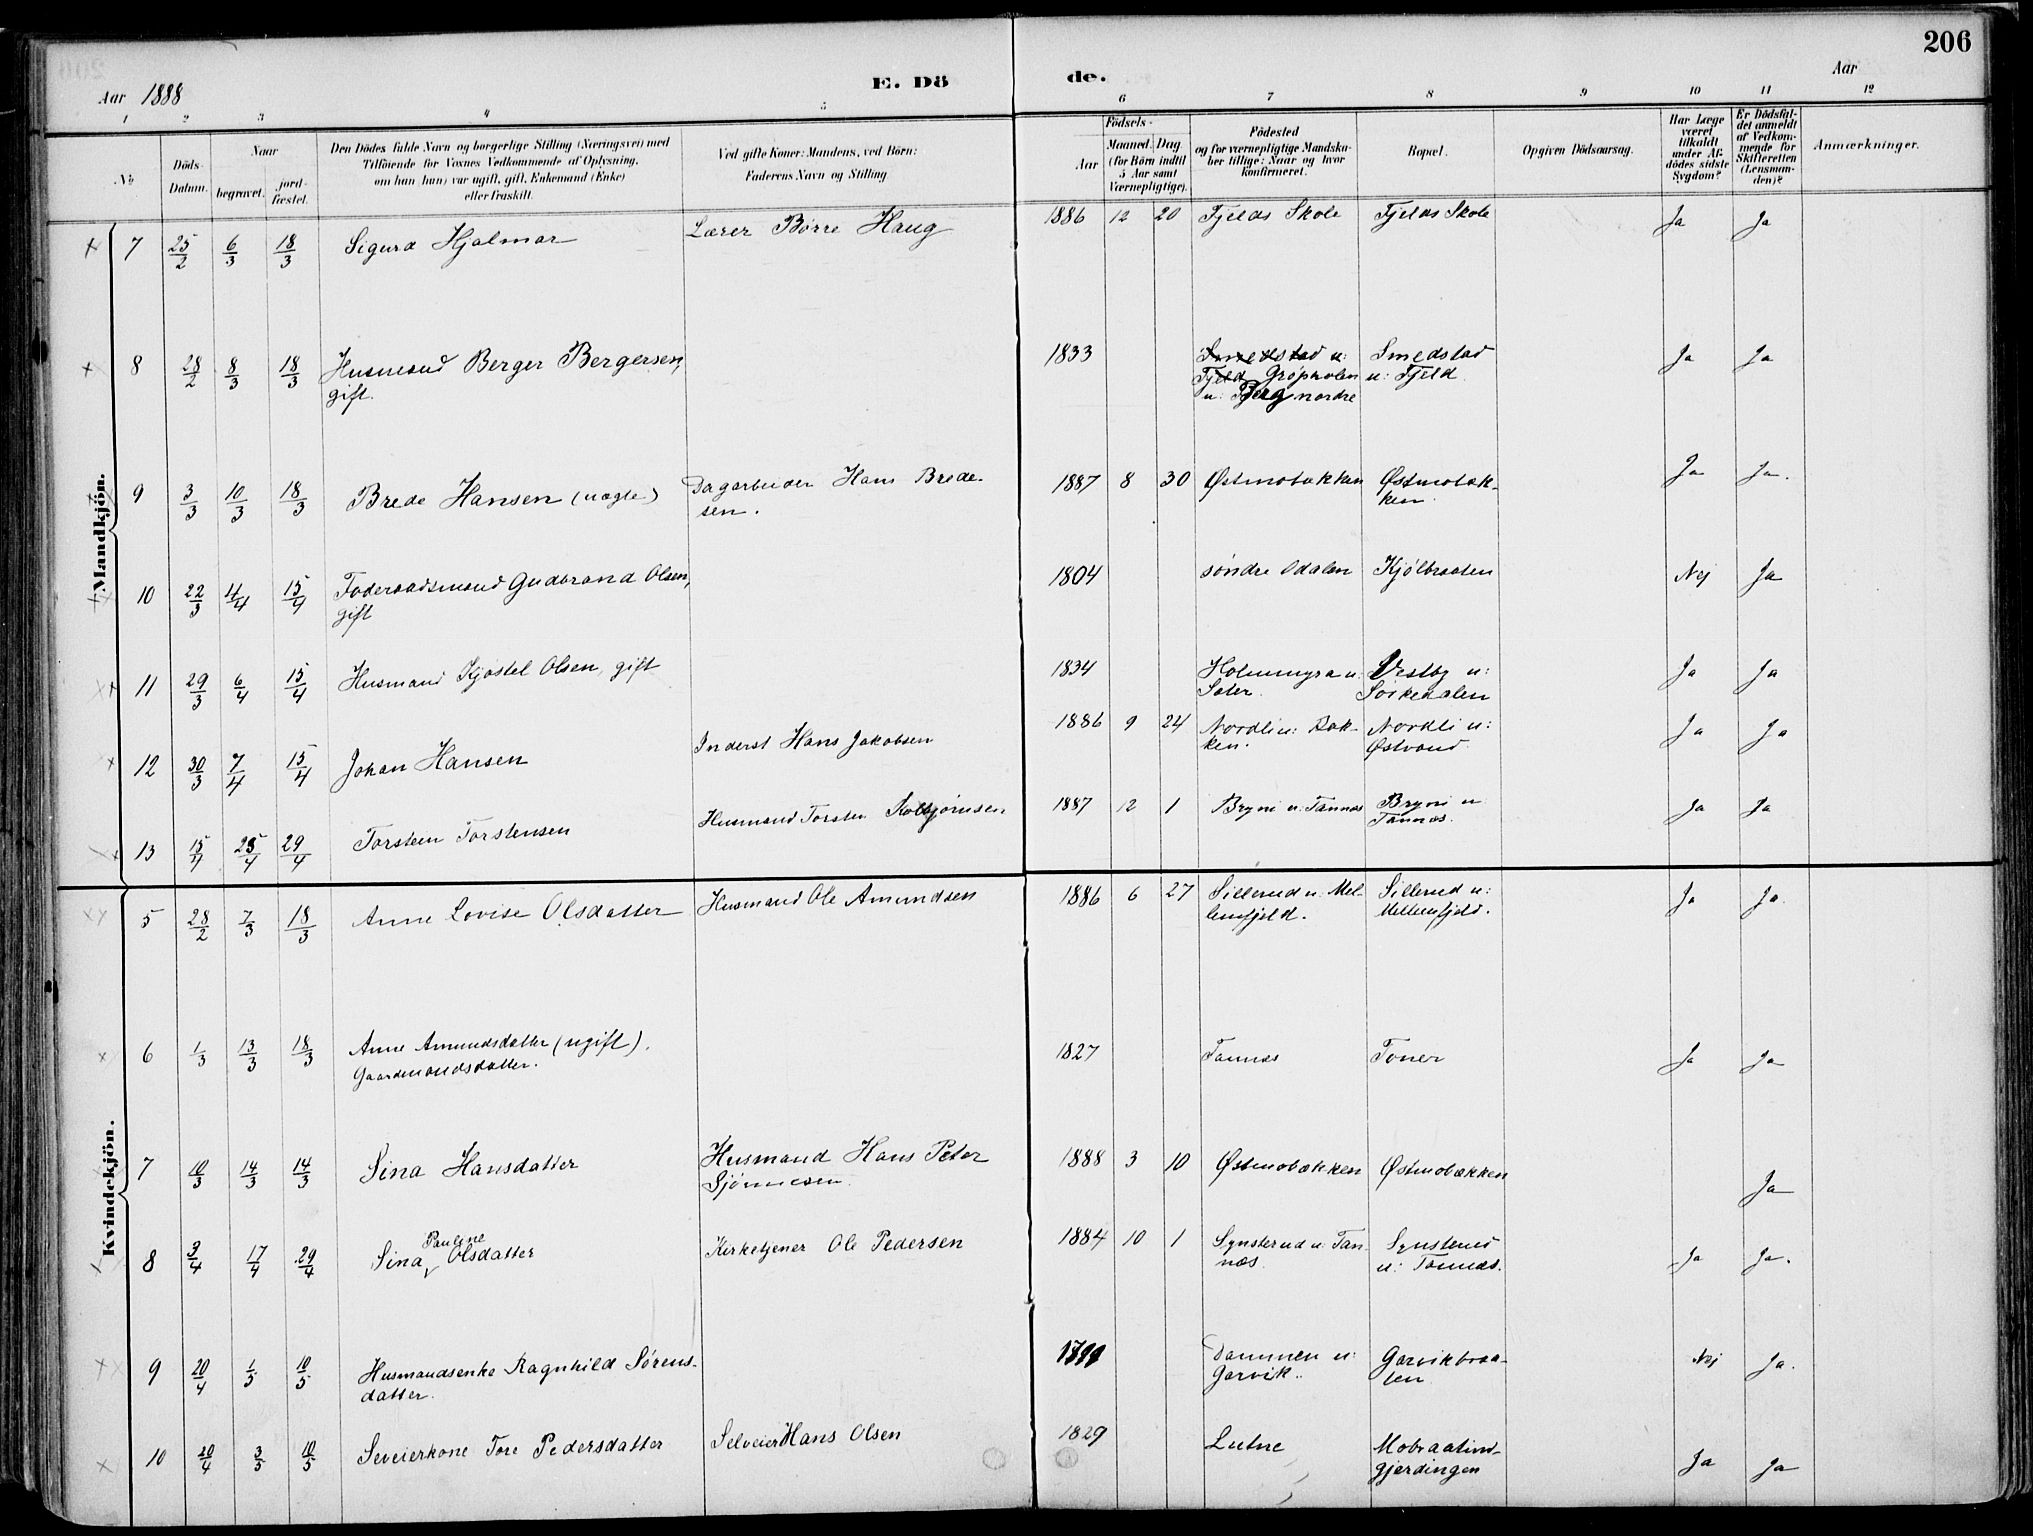 206
Aar 1888 E. Dö de. Aar
1 2 3 4 5 6 7 8 9 10 11 12
No. Döds-Datum. Naar begravet. jord-fæstet. Den Dödes fulde Navn og borgerlige Stilling (Næringsvei) med Tilföiende for Voxnes Vedkommende af Oplysning, om han (hun) var ugift, gift, Enkemand (Enke) eller fraskilt. Ved gifte Koner: Mandens, ved Börn: Faderens Navn og Stilling. Födsels- Aar Maaned. Dag (for Börn indtil 5 Aar samt Værnepligtige). Födested og for værnepligtige Mandska-ber tillige: Naar og hvor konfirmeret. Bopæl. Opgiven Dödsaarsag. Har Læge været tilkaldt under Af-dödes sidste Sygdom? Er Dödsfal-det anmeldt af Vedkom-mende for Skifteretten (Lensman-den)? Anmærkninger.
Mandkjön.
7 25/2 6/3 18/3 Sigurd Hjalmar Lærer Børre Haug 1886 12 20 Fjelds Skole Fjelds Skole Ja Ja
8 28/2 8/3 18/3 Husmand Berger Bergersen, 1833 Smedstad u: Smedstad Ja Ja
gift. Fjeld Grøpholen u: Fjeld.
u: Berg nordre
9 3/3 10/3 18/3 Brede Hansen (uægte) Dagarbeider Hans Brede- 1887 8 30 Østmobakken Østmobæk- Ja Ja.
sen. ken.
10 22/3 4/4 15/4 Föderaadsmand Gudbrand Olsen, 1804 søndre Odalen Kjølbraaten Nej Ja
gift
11 29/3 6/4 15/4 Husmand Kjøstel Olsen, gift 1834 Holmmyra u: Vestby u: Ja Ja
Sæter. Sørkedalen
12 30/3 7/4 15/4 Johan Hansen Inderst Hans Jakobsen 1886 9 24 Nordli u: Bak- Nordli u: Ja Ja
ken. Østvand
13 15/4 25/4 29/4 Torsten Torstensen Husmand Torsten Kolbjørnsen 1887 12 1 Bryni u: Tannæs Bryni u: Ja Ja
Tannæs.
Kvindekjön.
5 28/2 7/3 18/3 Anne Lovise Olsdatter Husmand Ole Amundsen 1886 6 27 Sillerud u: Mel- Sillerud u: Ja Ja.
lemfjeld. Mellemfjeld.
6 1/3 13/3 18/3 Anne Amundsdatter (ugift). 1827 Tannæs Toner Ja Ja
Gaardmandsdatter.
7 10/3 14/3 14/3 Sina Hansdatter Husmand Hans Peter 1888 3 10 Østmobækken Østmobækken Ja
8 3/4 17/4 29/4 Sina Pauline Olsdatter Kirketjener Ole Pedersen 1884 10 1 Synsterud u: Tan- Synsterud Ja Ja.
næs. u: Tannæs.
9 20/4 1/5 10/5 Husmandsenke Ragnhild Sørens- Dammen u: Garvikbraa- Nej Ja.
datter. Garvik. ten
10 20/4 3/5 10/5 Seveierkone Tore Pedersdatter Selveier Hans Olsen 1829 Lutne Mobraatind- Ja Ja
gjerdingen